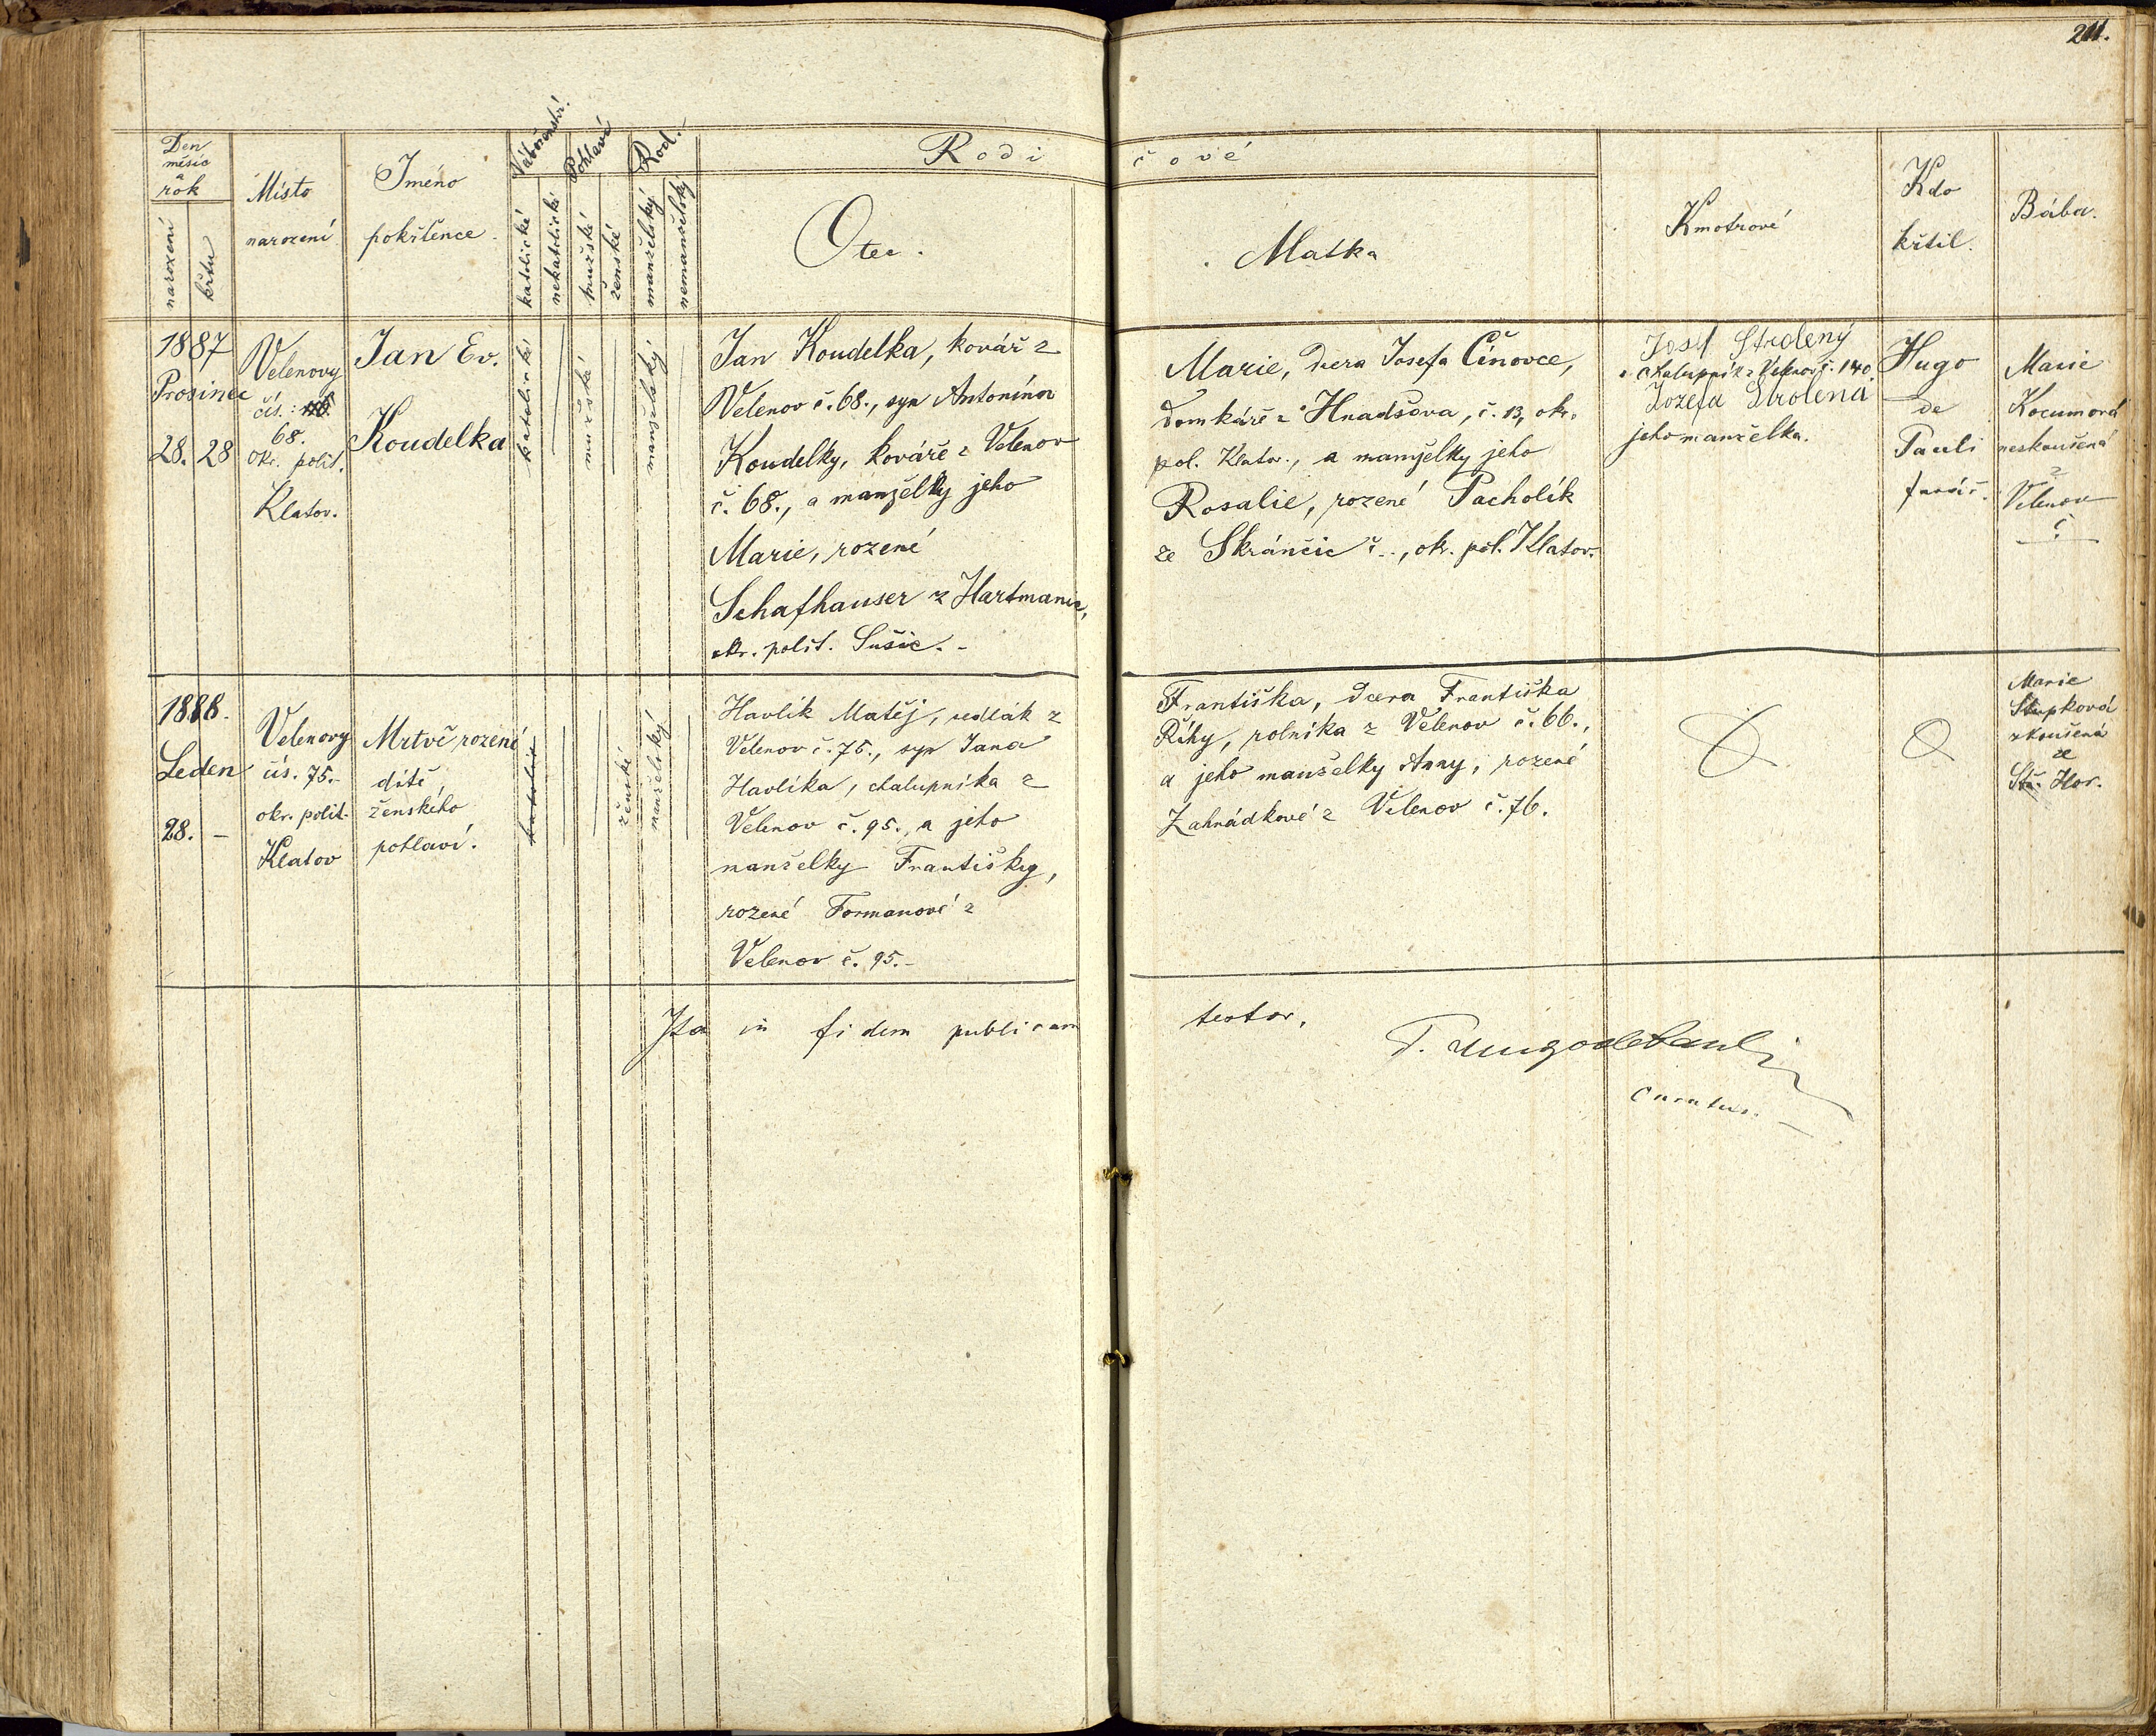 211.
Den
měsíc
a
rok
narození
křtu
Místo
narození
Jméno
pokřtěnce
Náboženství.
katolické
nekatolické
Pohlaví
mužské
ženské
Rod.
manželský
nemanželský
Rodi
čové
Otec.
Matka
Kmotrové
Kdo
křtil.
Bába.
1887
Prosinec
28. 28
Velenovy
čís.:
68.
okr. polit.
Klatov.
Jan Ev.
Koudelka
katolické
mužské
manželský
Jan Koudelka, kovář z
Velenov č. 68., syn Antonína
Koudelky, kováře z Velenov
č. 68., a manželky jeho
Marie, rozené
Schafhauser z Hartmanic,
okr. polit. Sušic. -
Marie, dcera Josefa Čínovce,
domkáře z Hnadšova, č. 13, okr.
pol. Klatov., a manželky jeho
Rosalie, rozené Pacholík
ze Skránčic č.., okr. pol. Klatov.
Josef Strolený
chalupník z Velenov č. 140.
Jozefa Strolená
jeho manželka.
Hugo
de
Pauli
farář.
Marie
Kocumová
neskoušená
z
Velenov
č
1888.
Leden
28. -
Velenovy
čís. 75.-
okr. polit.
Klatov
Mrtvě rozené
dítě
ženského
pohlaví.
katolické
ženské
manželský
Havlík Matěj, sedlák z
Velenov č. 75., syn Jana
Havlíka, chalupníka z
Velenov č. 95., a jeho
manželky Františky,
rozené Formanové z
Velenov č. 95.-
Františka, dcera Františka
Říhy, rolníka z Velenov č. 66.,
a jeho manželky Anny, rozené
Zahrádkové z Velenov č. 76.
Marie
zkoušená
ze
Stř. Hor.
Ita in fidem publicam
testor,
P. Hugo de Pauli
curatus.